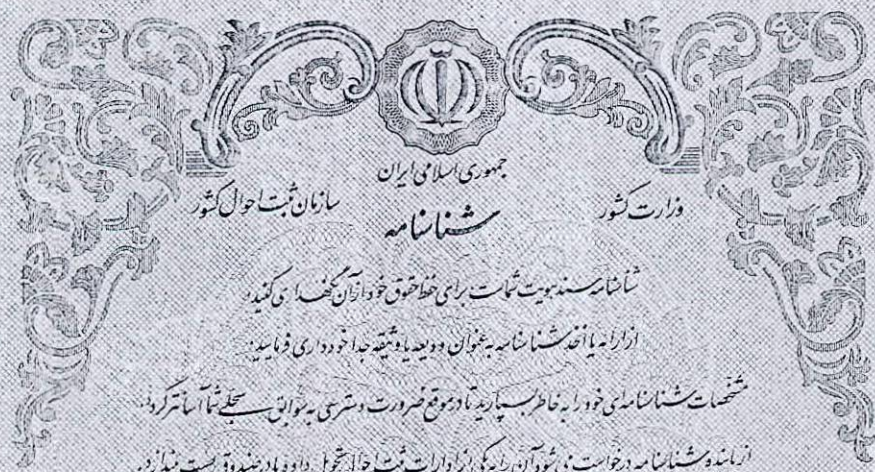 جمهوری اسلامی ایران
وزارت کشور سازمان ثبت احوال کشور
شناسنامه
شناسنامه سند هویت شماست برای حفظ حقوق خود از آن نگهداری کنید.
از ارائه یا اخذ شناسنامه به عنوان ودیعه یا وثیقه جدا خودداری فرمایید.
مشخصات شناسنامه‌ای خود را به خاطر بسپارید تا در موقع ضرورت دسترسی به سوابق سجلی شما آسانتر گردد.
از یابنده شناسنامه درخواست می‌شود آن را به یکی از ادارات ثبت احوال تحویل داده یا در صندوق پست بیندازد.